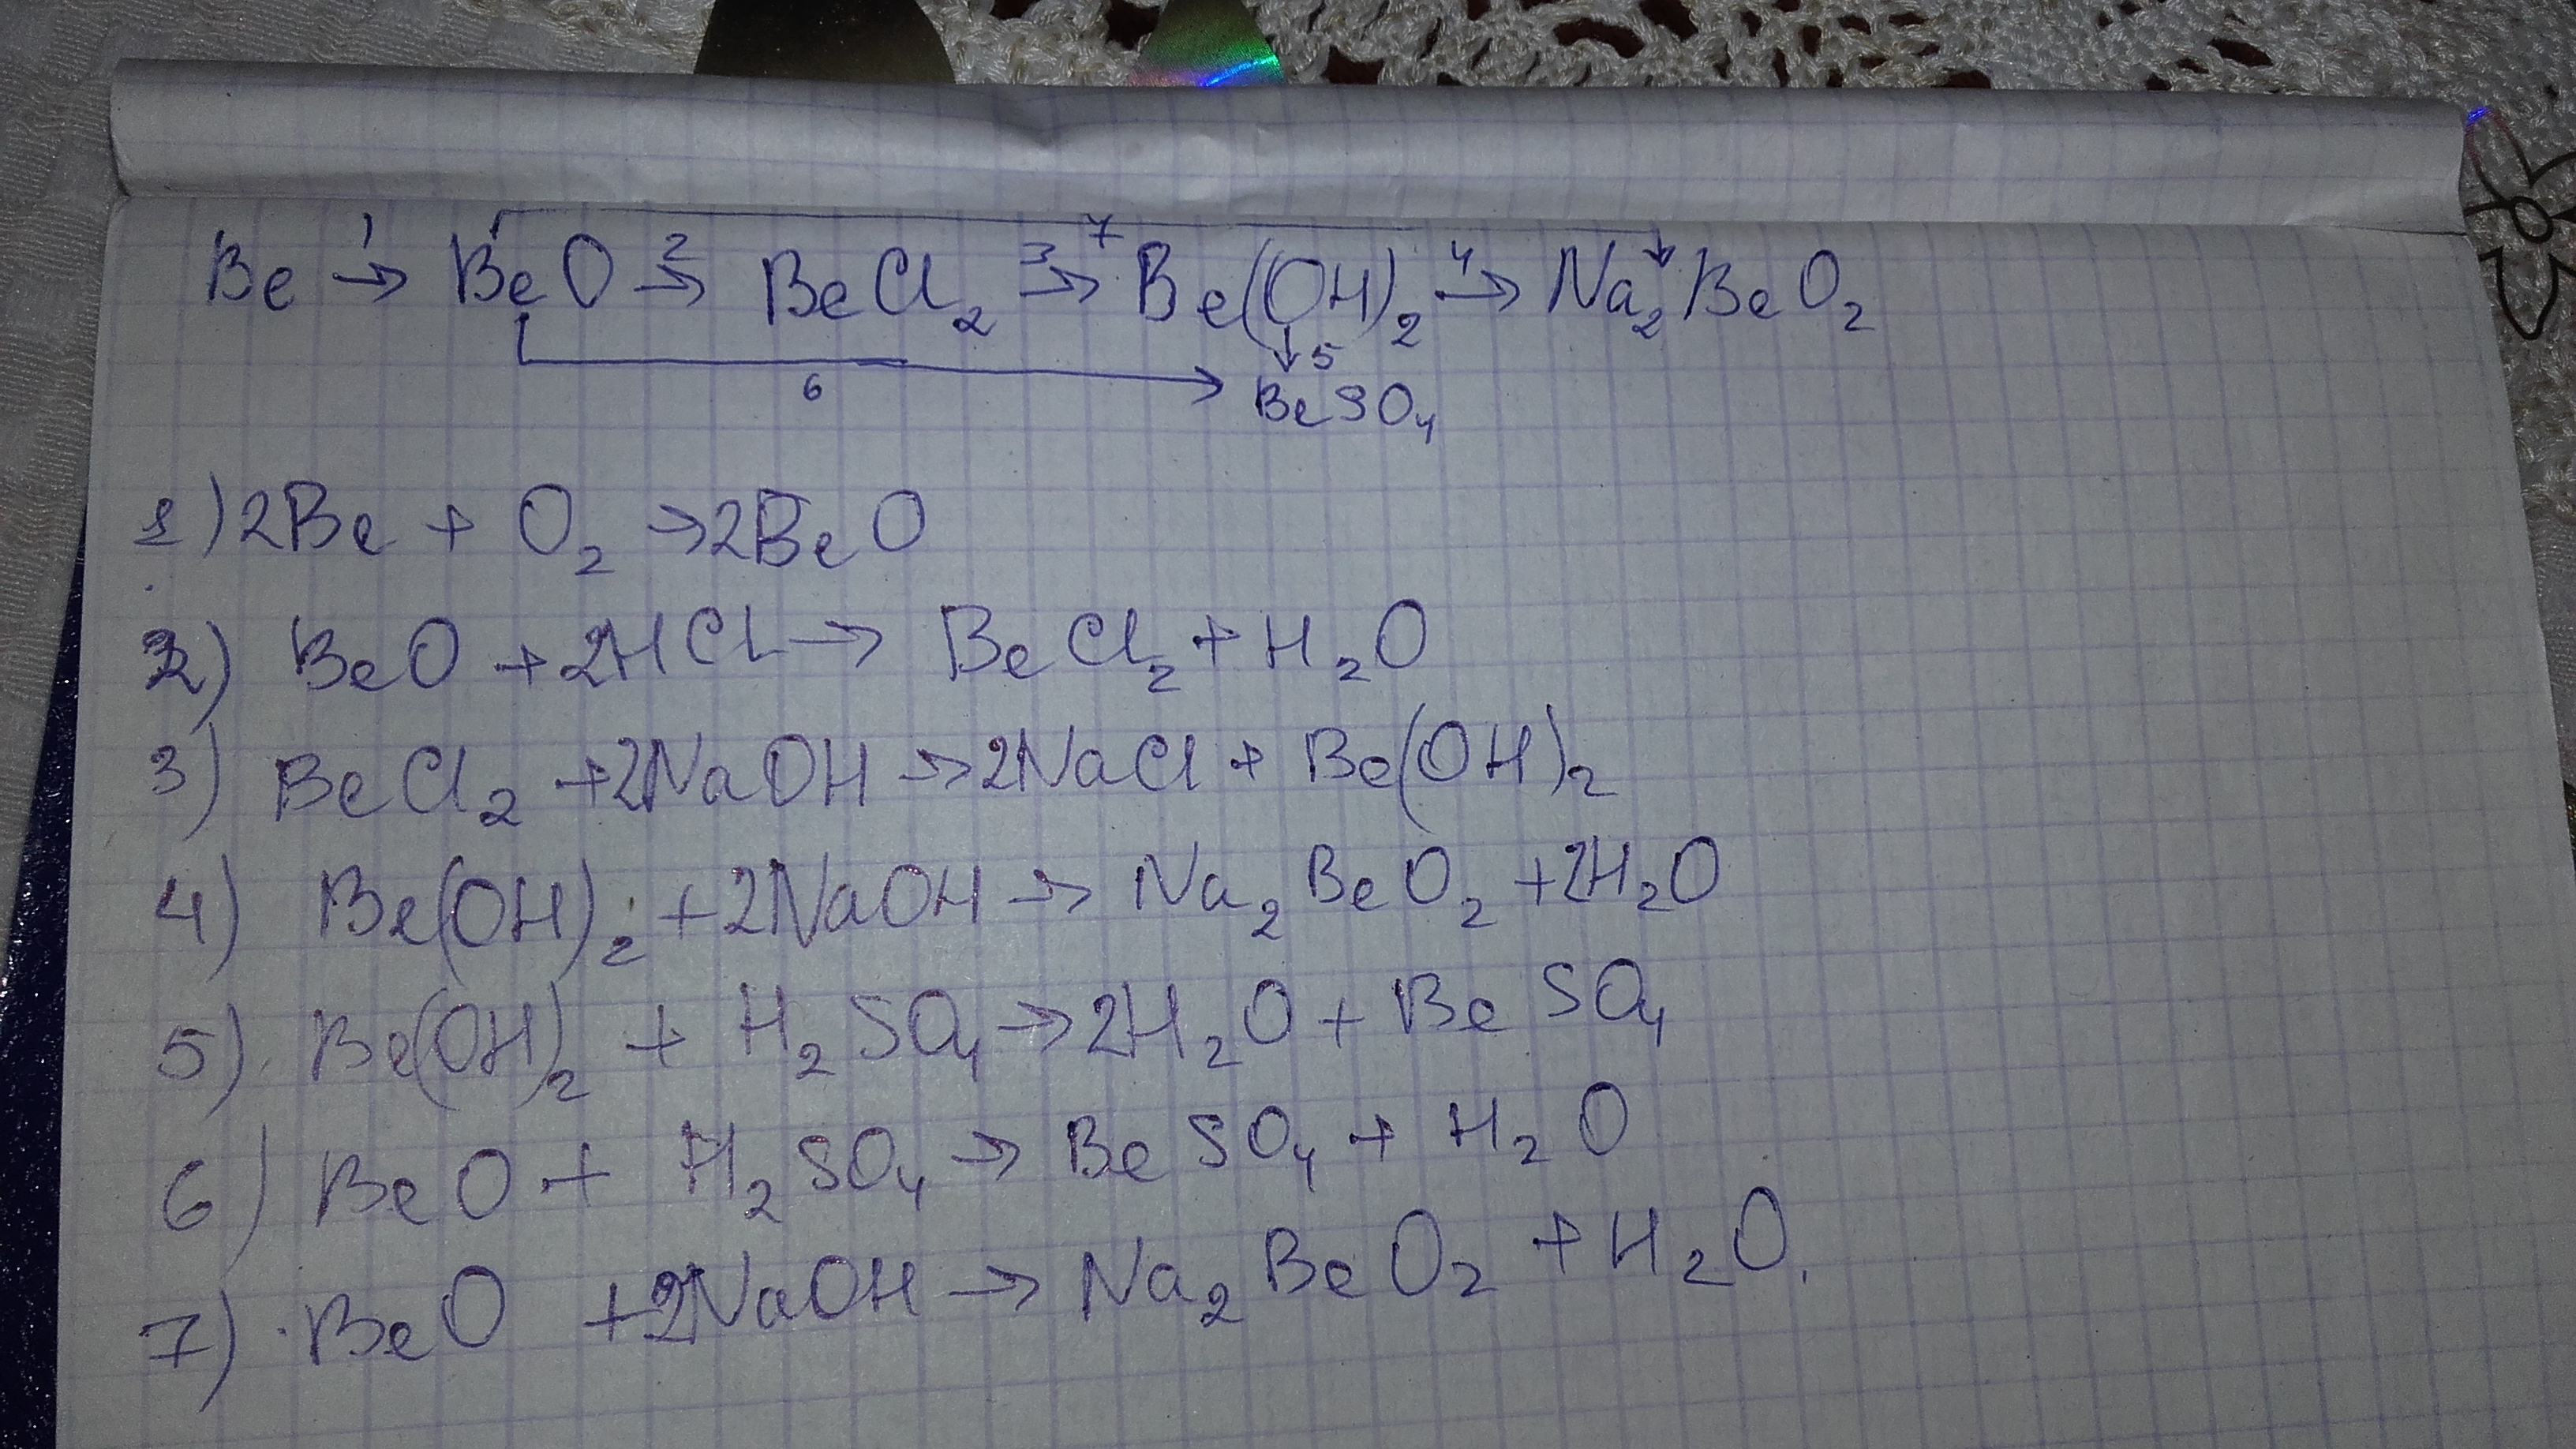 Be →¹ BeO →² BeCl₂ →³ Be(OH)₂ →⁴ Na₂BeO₂
7
↓5
6
BeSO₄
1) 2Be + O₂ → 2BeO
2) BeO + 2HCl → BeCl₂ + H₂O
3) BeCl₂ + 2NaOH → 2NaCl + Be(OH)₂
4) Be(OH)₂ + 2NaOH → Na₂BeO₂ + 2H₂O
5) Be(OH)₂ + H₂SO₄ → 2H₂O + BeSO₄
6) BeO + H₂SO₄ → BeSO₄ + H₂O
7) BeO + 2NaOH → Na₂BeO₂ + H₂O.